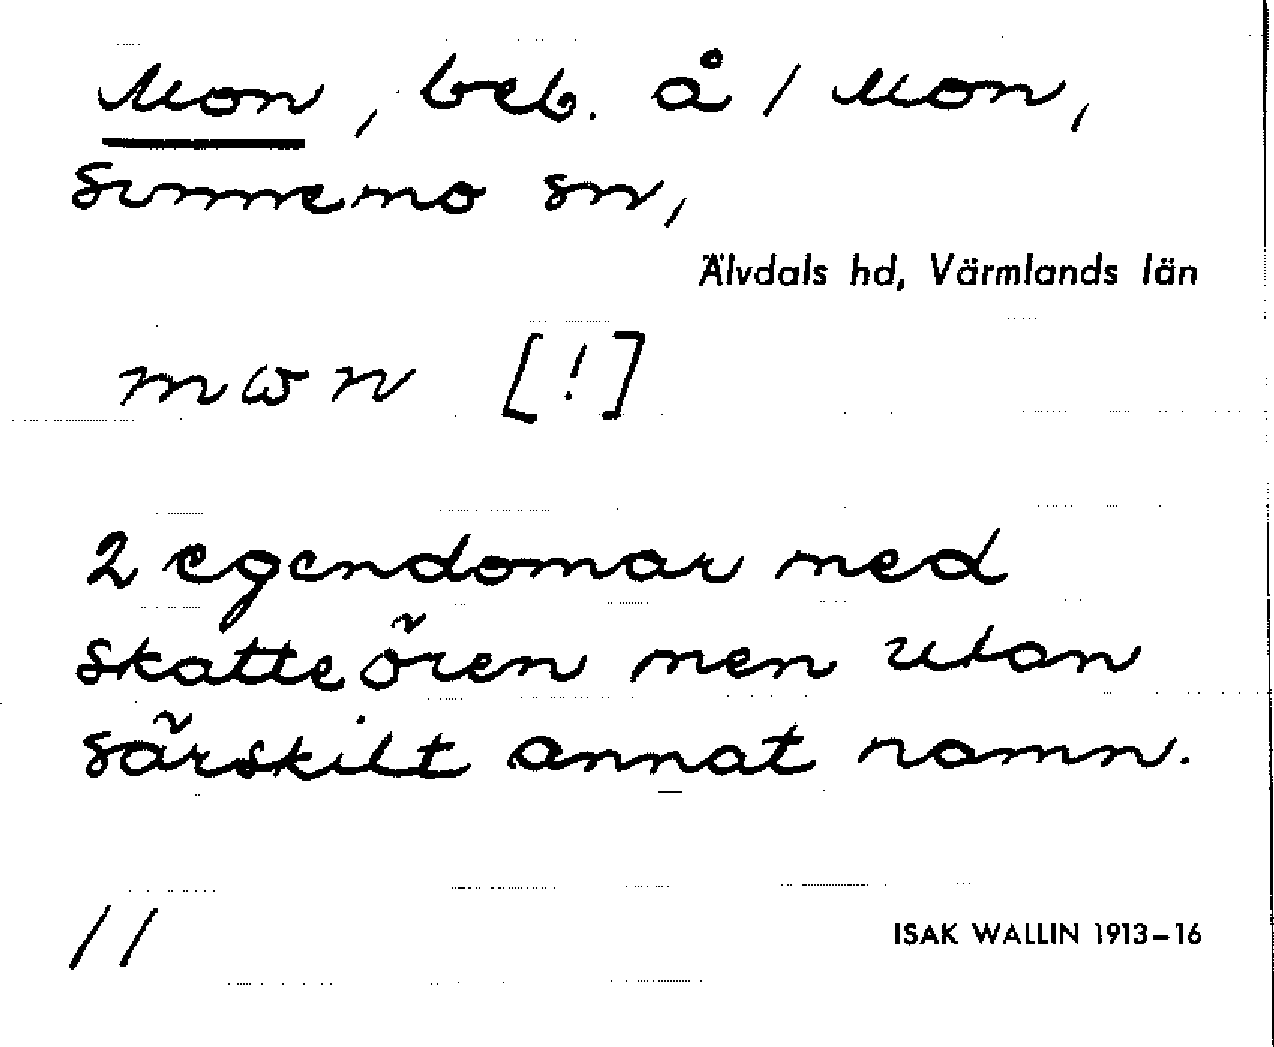 Mon, beb. å / Mon,
Sunnemo sn,
Älvdals hd, Värmlands län
mωn [!]
2 egendomar med
skatteören men utan
särskilt annat namn.
11
ISAK WALLIN 1913-16